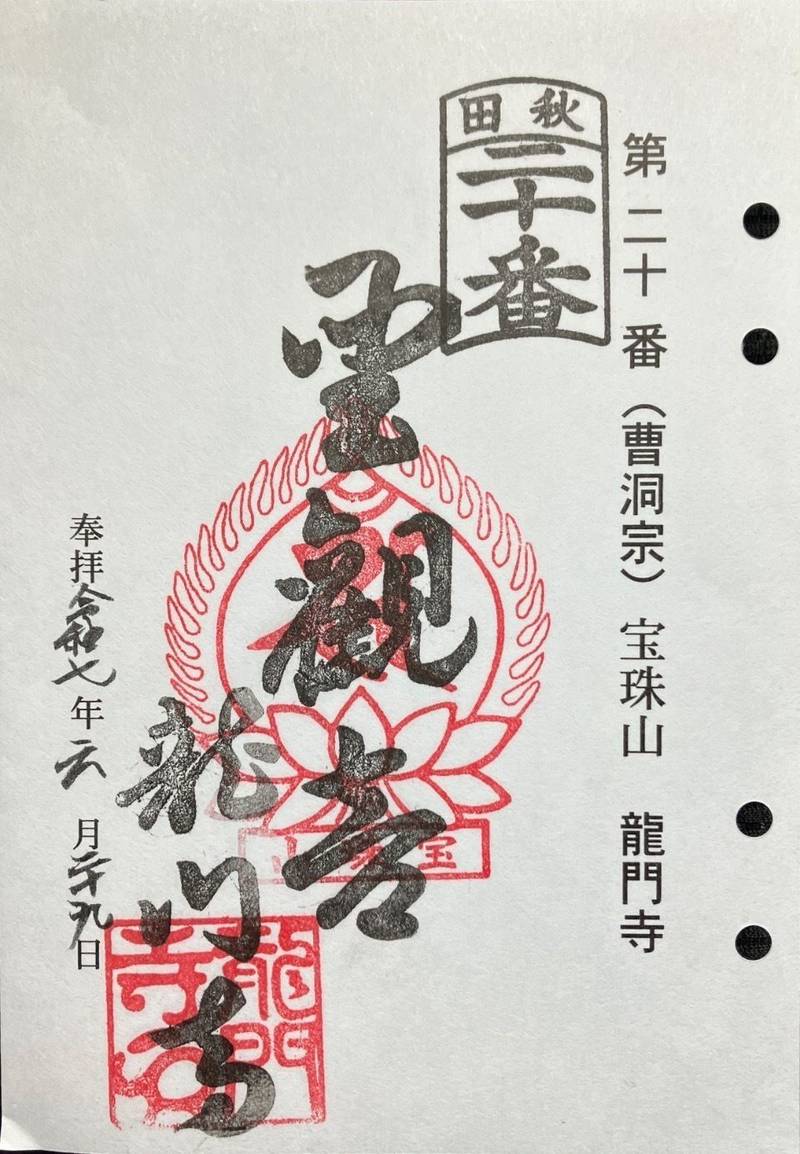 第二十番（曹洞宗）宝珠山　龍門寺
秋田
二十番
聖觀音
宝珠山
龍門寺
龍門寺印
奉拝令和七年六月二十九日